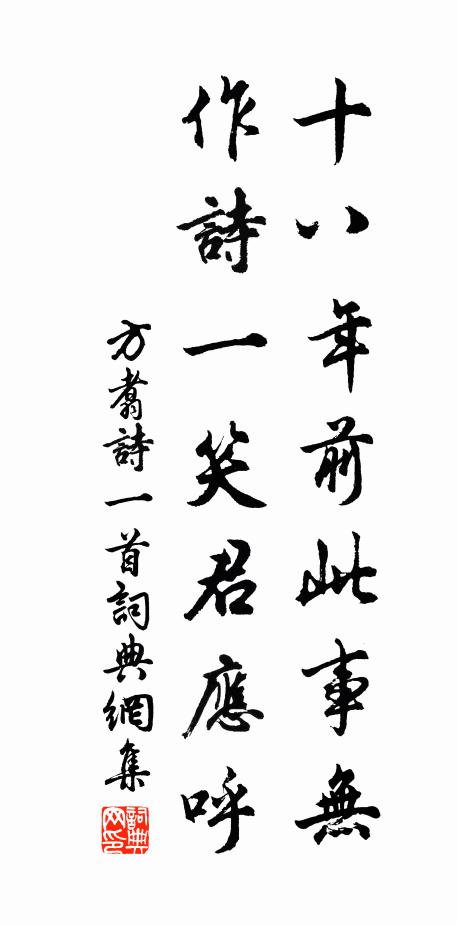 十八年前此事無
作詩一笑君應呼
方翥詩一首詞典網集
詞典网印